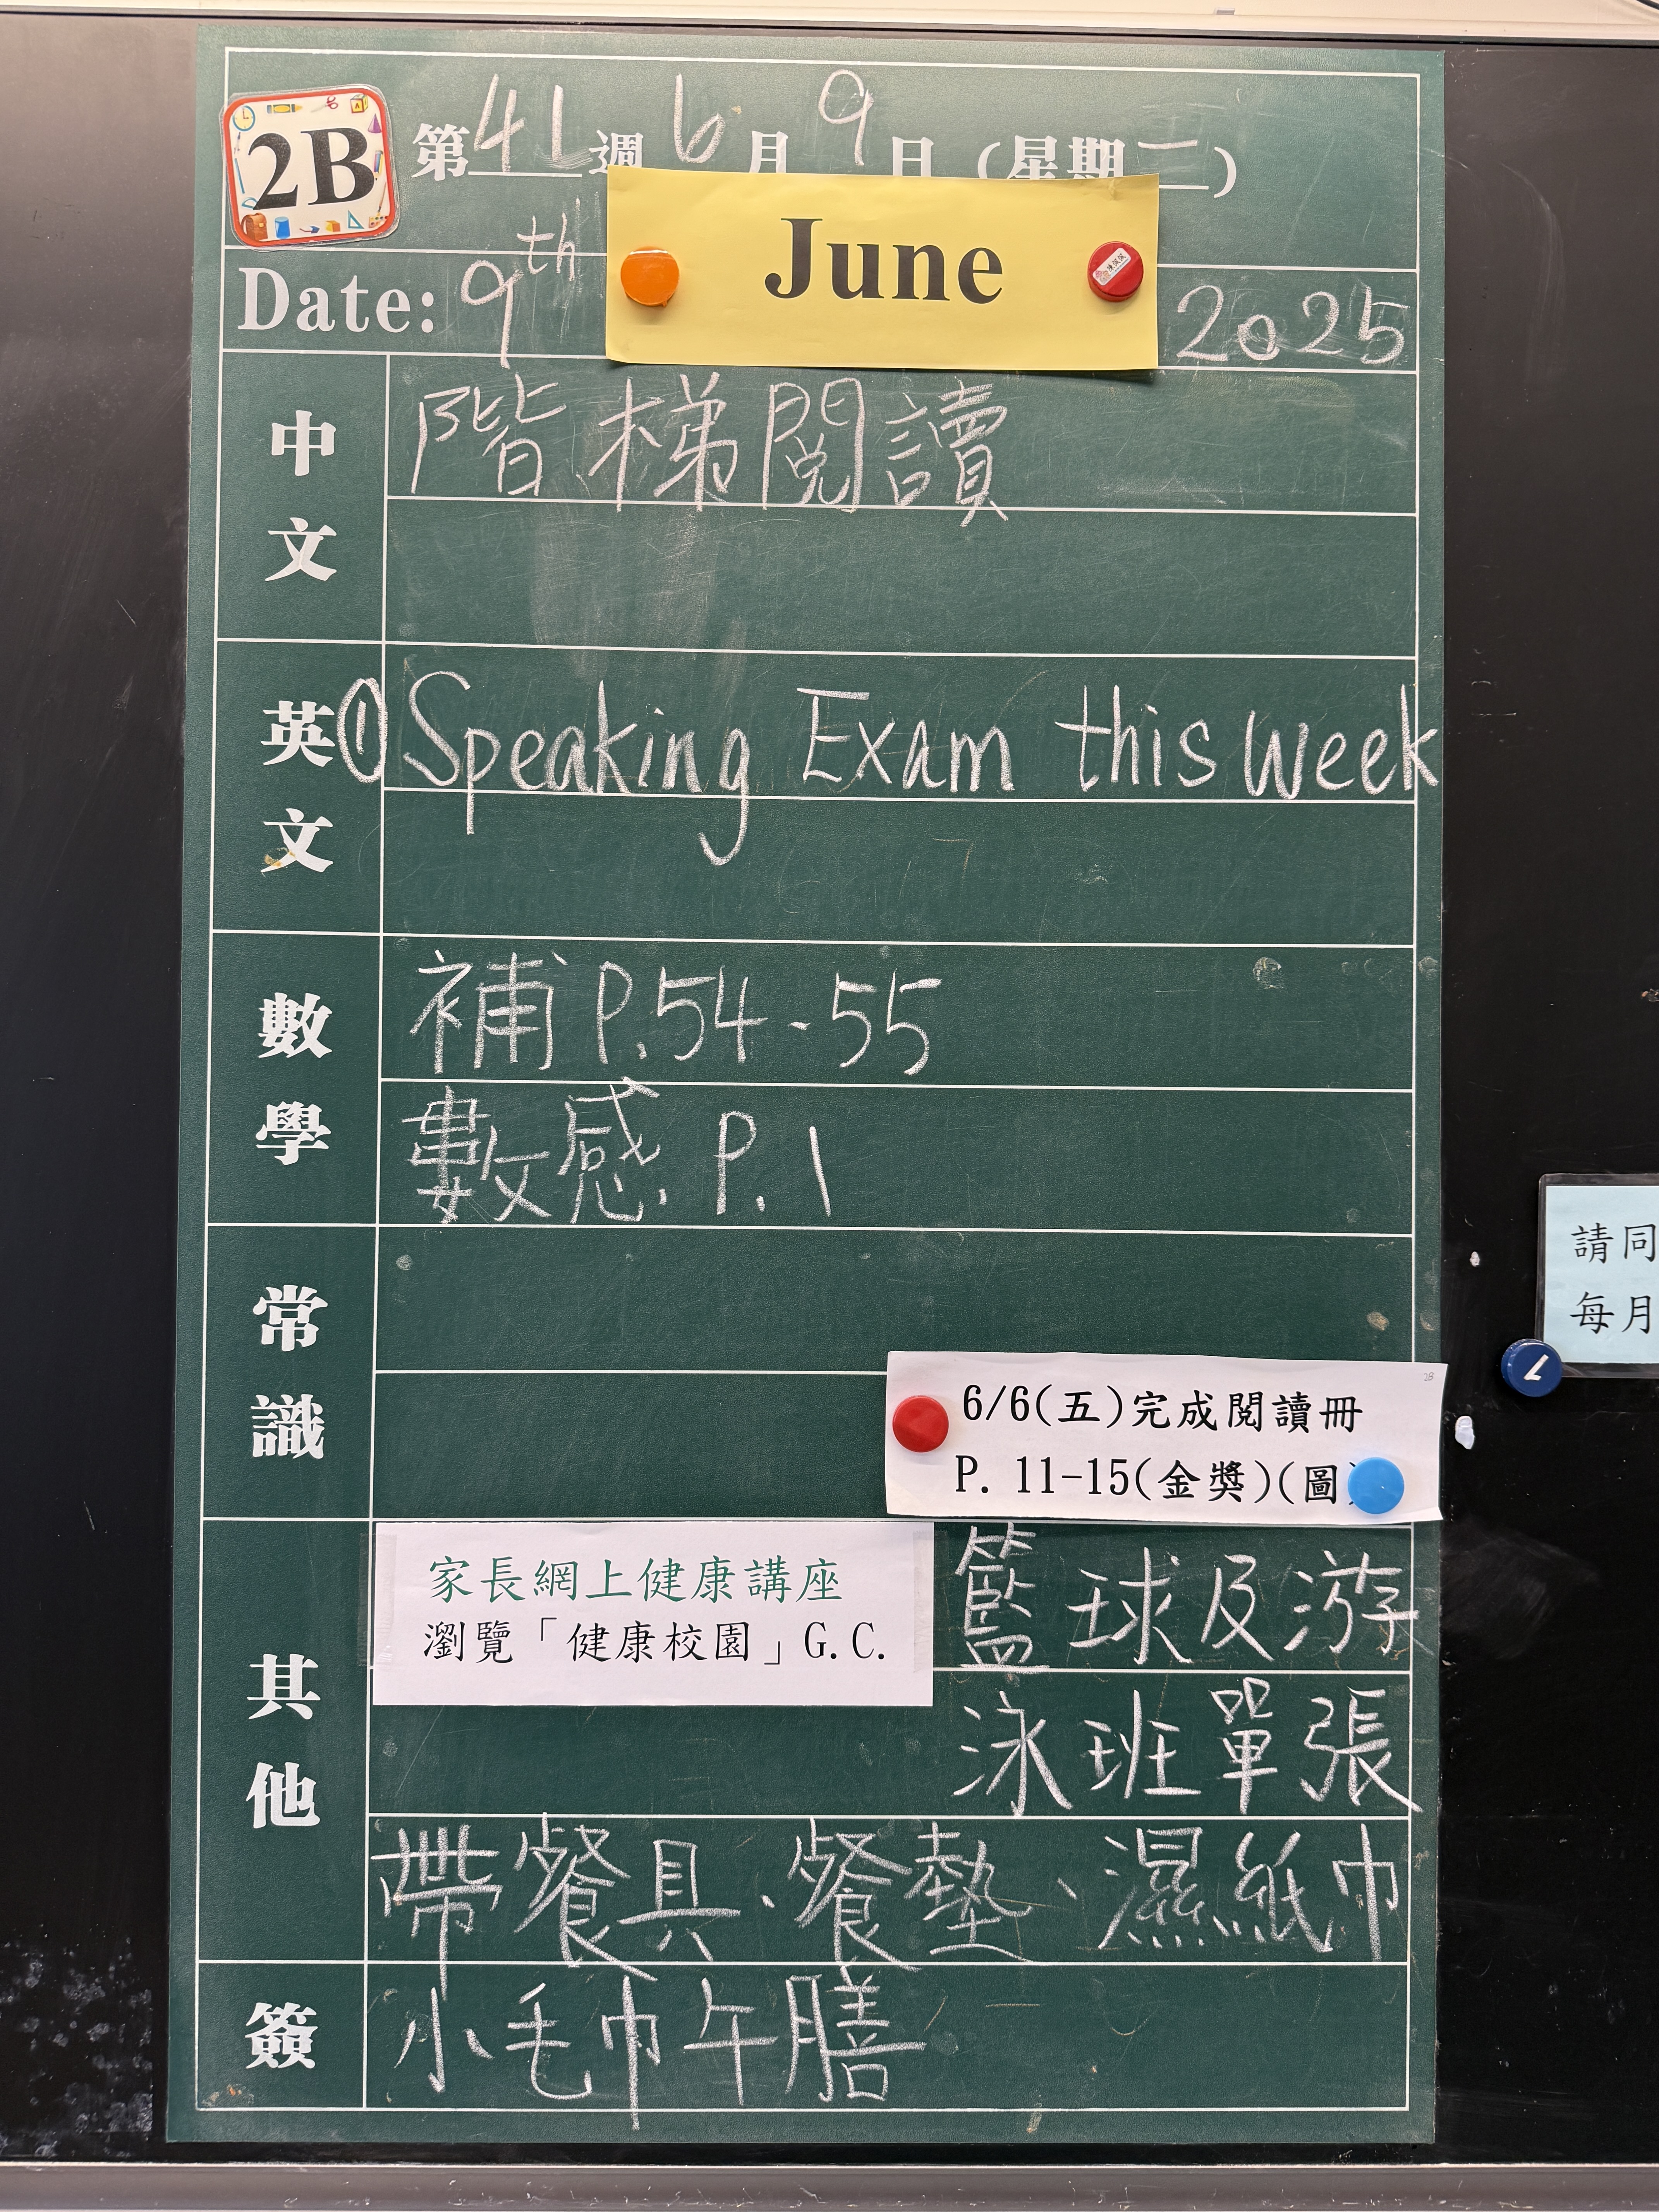 2B
第41週 6月9日(星期一)
Date: 9th June 2025
中文
階梯閱讀
英文
① Speaking Exam this week
數學
補 P.54-55
數感 P.1
常識
6/6(五)完成閱讀冊
P. 11-15(金獎)(圖
其他
家長網上健康講座
瀏覽「健康校園」G.C.
籃球及游
泳班單張
帶餐具、餐墊、濕紙巾
簽
小毛巾午膳
請同
每月